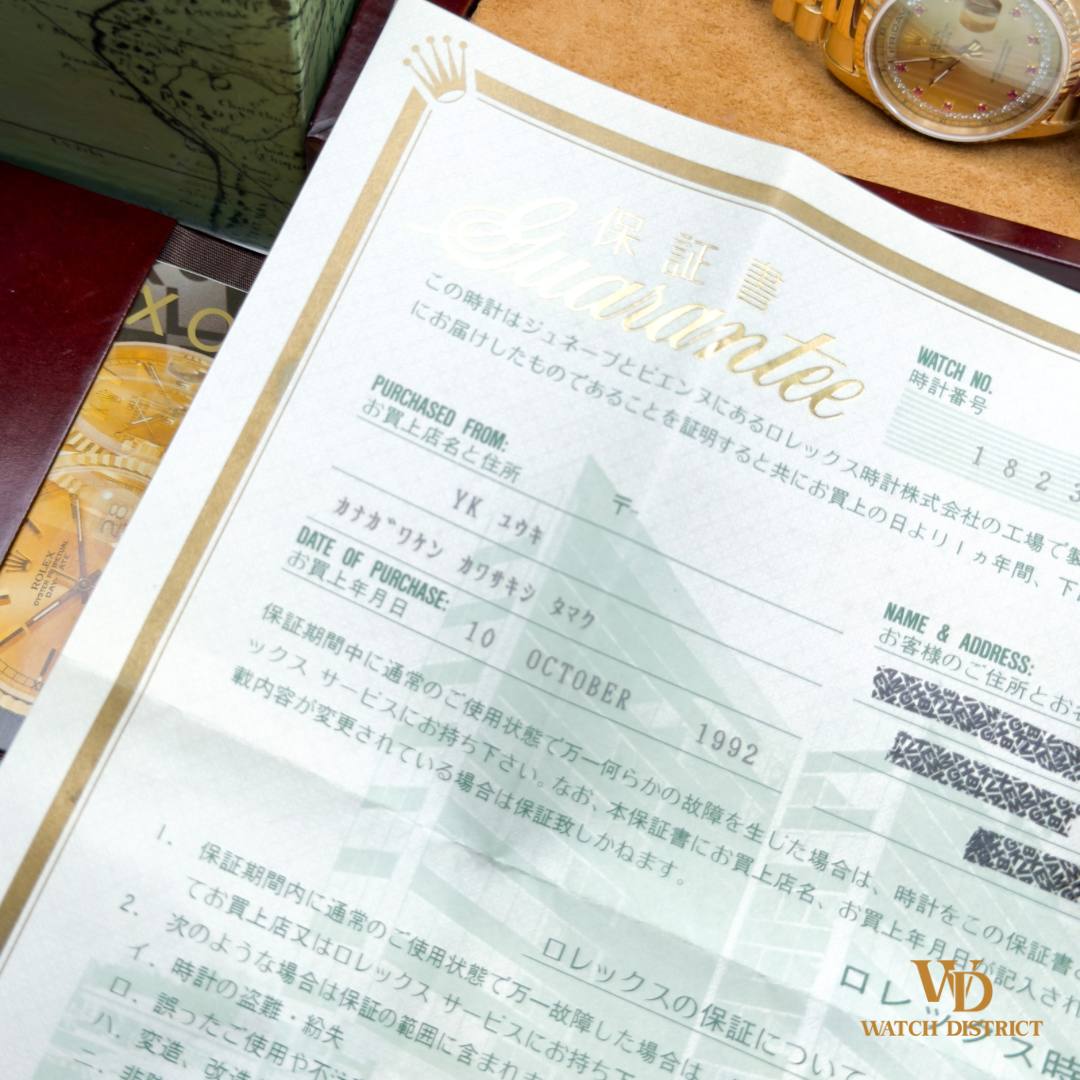 保証書
Guarantee
この時計はジュネーブとビエンヌにあるロレックス時計株式会社の工場で製
にお届けしたものであることを証明すると共にお買上の日より1ヵ年間、下
WATCH NO.
時計番号
1823
PURCHASED FROM:
お買上店名と住所
〒
YK ユウキ
カナガワケン カワサキシ タマク
DATE OF PURCHASE:
お買上年月日
10 OCTOBER 1992
NAME & ADDRESS:
お客様のご住所とお
保証期間中に通常のご使用状態で万一何らかの故障を生じた場合は、時計をこの保証書と
ックス サービスにお持ち下さい。なお、本保証書にお買上店名、お買上年月日が記入され
載内容が変更されている場合は保証致しかねます。
ロレックス時
ロレックスの保証について
1. 保証期間内に通常のご使用状態で万一故障した場合は、
てお買上店又はロレックス サービスにお持ち下
2. 次のような場合は保証の範囲に含まれま
イ. 時計の盗難・紛失
ロ. 誤ったご使用や不注
ハ. 変造、改造
ニ. 非
XO
ROLEX
OYSTER PERPETUAL
DAY-DATE
28
WD
WATCH DISTRICT